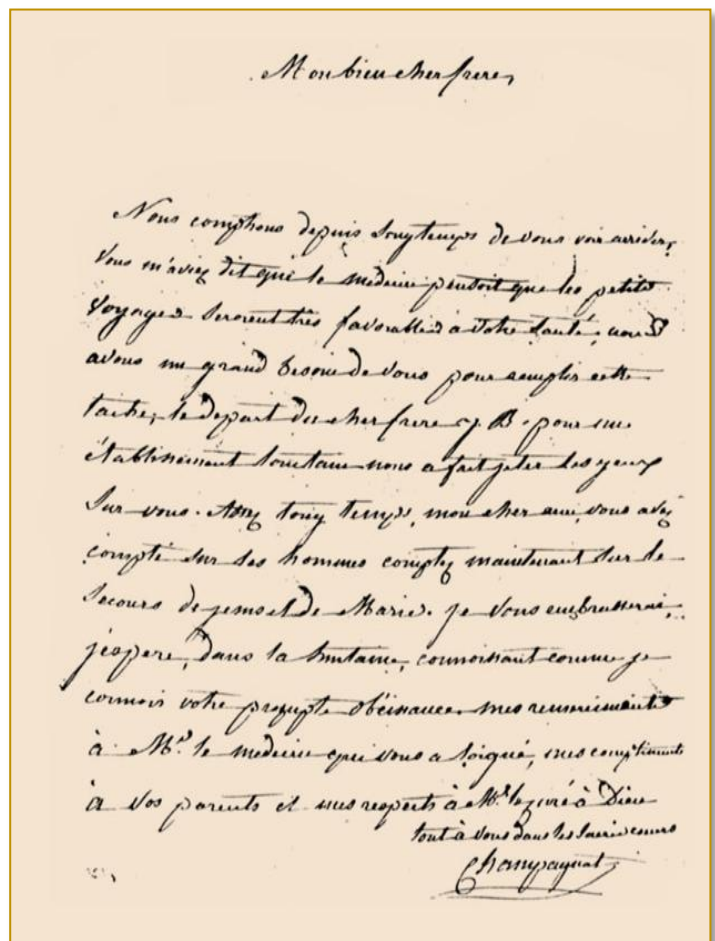 Mon bien cher frere,
Nous comptions depuis longtemps de vous voir arriver,
vous m'aviez dit que le medecin pensoit que les petits
voyages seroient très favorables à votre santé, nous
avons un grand besoin de vous pour remplir cette
tache, le depart du cher frere J. B. pour un
établissement lointain nous a fait jeter les yeux
sur vous. Assez long temps, mon cher ami, vous avez
compté sur les hommes comptez maintenant sur le
secours de Jesus et de Marie. je vous embrasserai,
j'espere, dans la huitaine, connoissant comme je
connois votre prompte obéissance. mes remerciments
à Mr. le medecin qui vous a soigné, mes compliments
à vos parents et mes respects à Mr. le curé à Dieu
tout à vous dans les sacrés coeurs
Champagnat